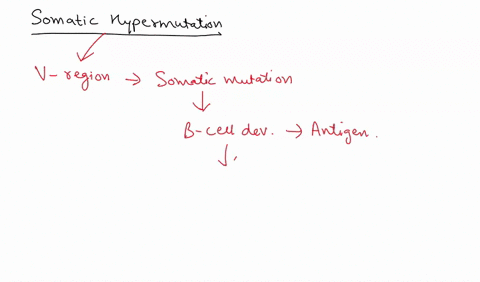 Somatic Hypermutation
V-region → Somatic mutation
B-cell dev. → Antigen.